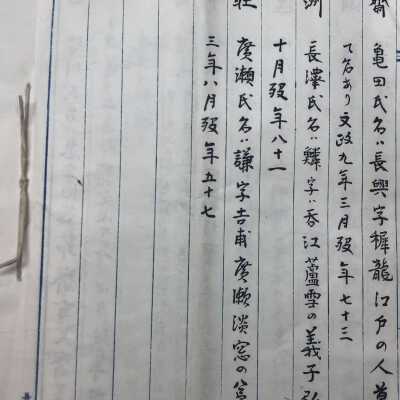 齋 亀田氏名ハ長興字穉龍江戸の人
て名あり文政九年三月歿年七十三
洲 長澤氏名ハ鱗字ハ呑江蘆雪の義子弘
十月歿年八十一
廣瀬氏名ハ謙字吉甫廣瀬淡窓の
三年八月歿年五十七